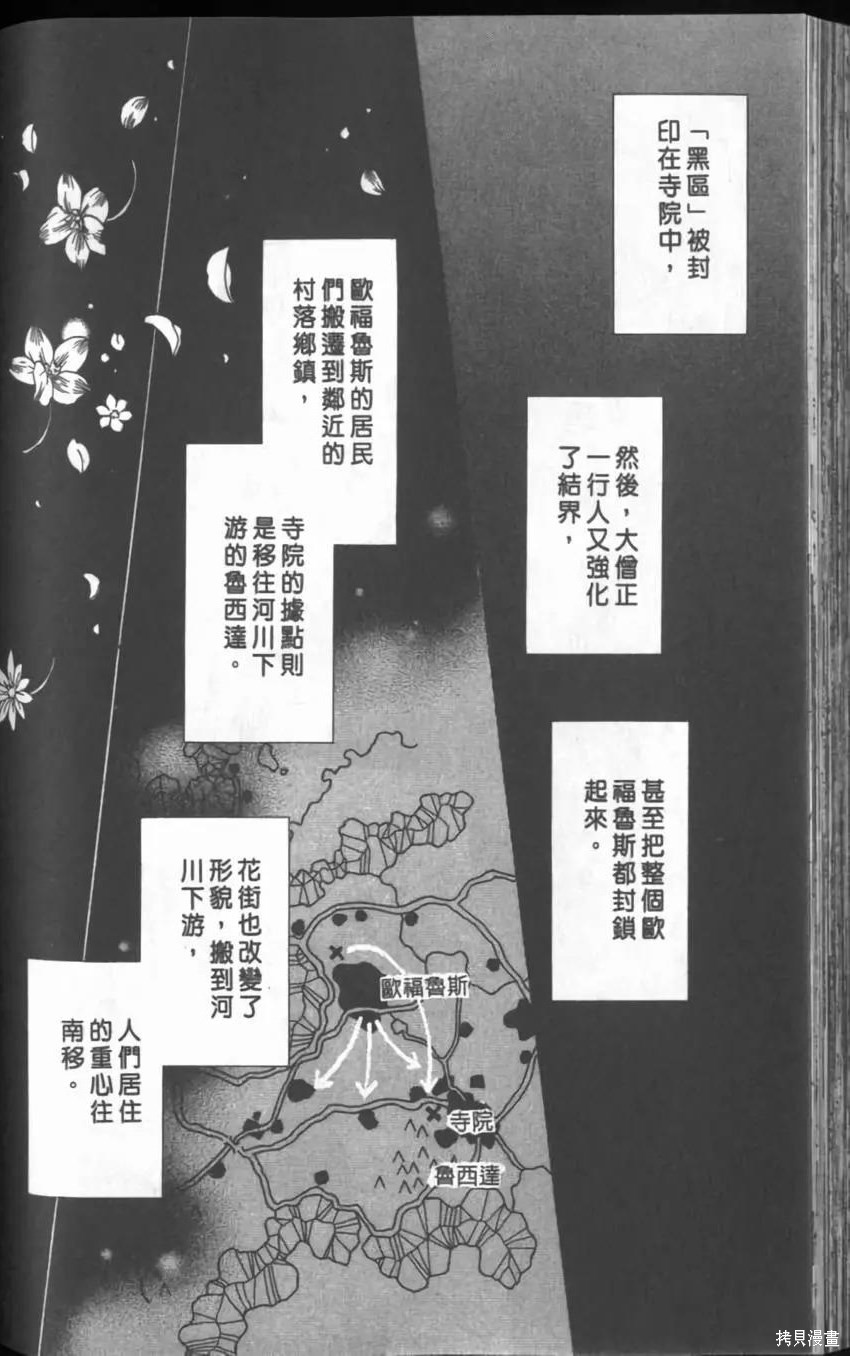 「黑區」被封
印在寺院中，
然後，大僧正
一行人又強化
了結界，
甚至把整個歐
福魯斯都封鎖
起來。
歐福魯斯的居民
們搬遷到鄰近的
村落鄉鎮，
寺院的據點則
是移往河川下
游的魯西達。
花街也改變了
形貌，搬到河
川下游，
人們居住
的重心往
南移。
歐福魯斯
寺院
魯西達
拷貝漫畫